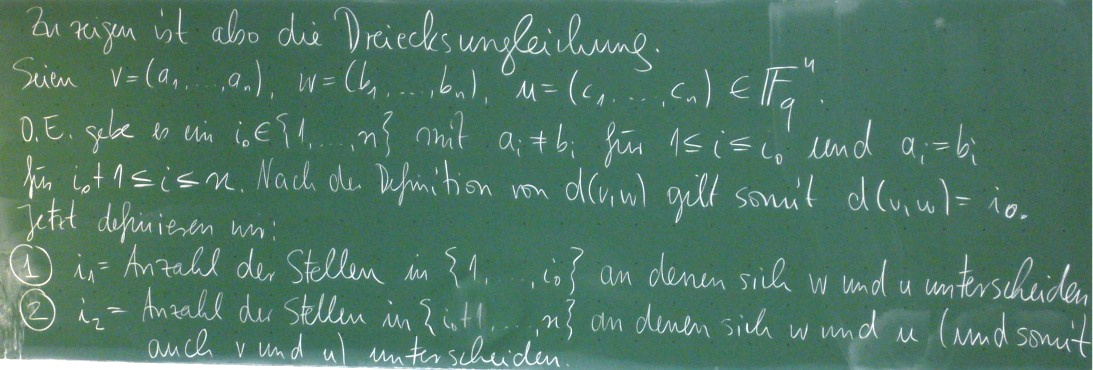 Zu zeigen ist also die Dreiecksungleichung.
Seien v=(a₁,...,aₙ), w=(b₁,...,bₙ), u=(c₁,...,cₙ) ∈ 𝔽_q^n.
O.E. gebe es ein i₀∈{1,...,n} mit aᵢ≠bᵢ für 1≤i≤i₀ und aᵢ=bᵢ
für i₀+1≤i≤n. Nach der Definition von d(v,w) gilt somit d(v,w)=i₀.
Jetzt definieren wir:
① i₁= Anzahl der Stellen in {1,...,i₀} an denen sich w und u unterscheiden
② i₂= Anzahl der Stellen in {i₀+1,...,n} an denen sich w und u (und somit
auch v und u) unterscheiden.